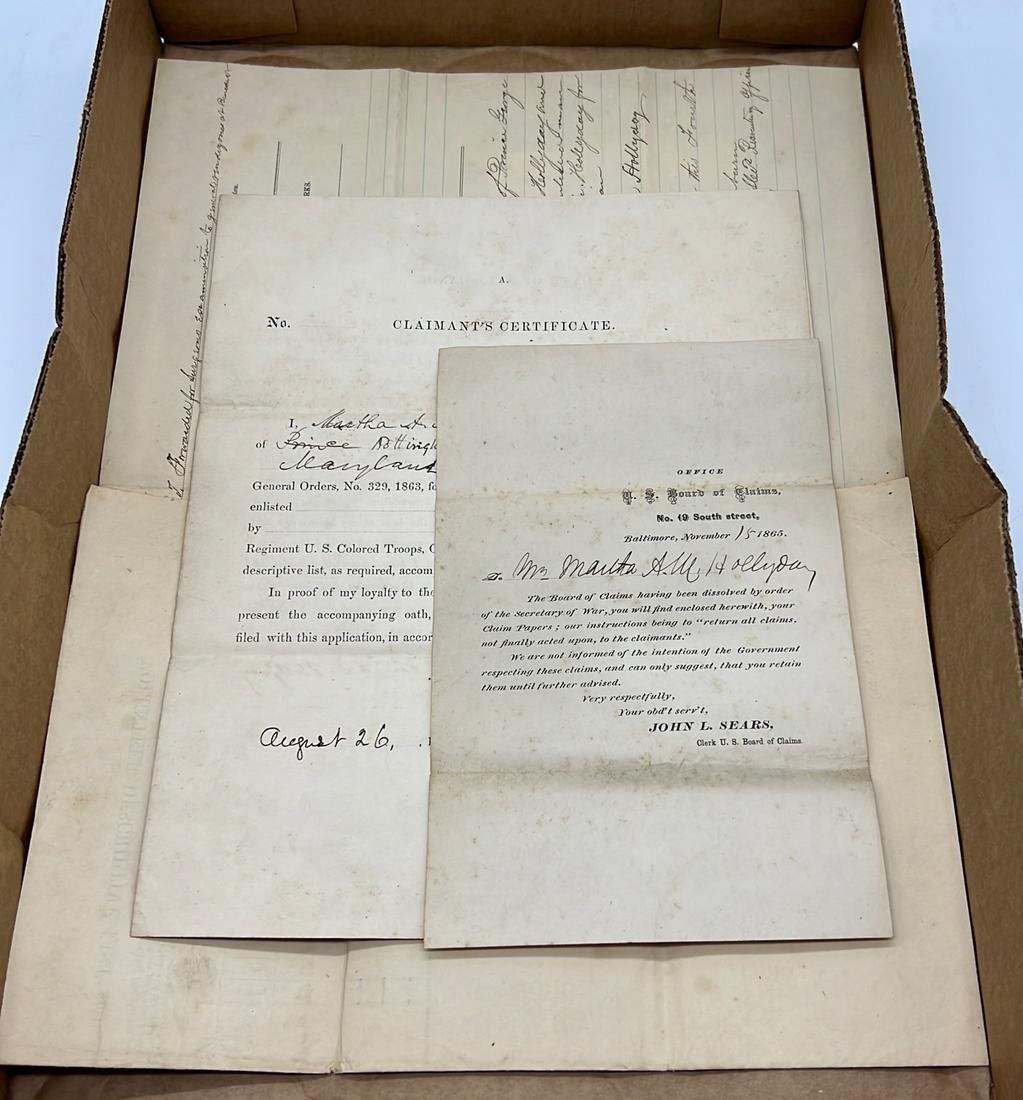 of Prince George
Hollyday and
Hollyday for
Hollyday
this Fourth
RKS.
Forwarded for Surgeons examination to
A.
No.
CLAIMANT'S CERTIFICATE.
I, Martha A.
of Prince Notting
Maryland
General Orders, No. 329, 1863, fo
enlisted
by
Regiment U. S. Colored Troops, C
descriptive list, as required, accom
In proof of my loyalty to the
present the accompanying oath,
filed with this application, in accor
August 26,
OFFICE
U. S. Board of Claims,
No. 19 South street,
Baltimore, November 15 1865.
To Mrs Martha A. M. Hollyday
The Board of Claims having been dissolved by order
of the Secretary of War, you will find enclosed herewith, your
Claim Papers; our instructions being to "return all claims,
not finally acted upon, to the claimants."
We are not informed of the intention of the Government
respecting these claims, and can only suggest, that you retain
them until further advised.
Very respectfully,
Your obd't serv't,
JOHN L. SEARS,
Clerk U. S. Board of Claims.